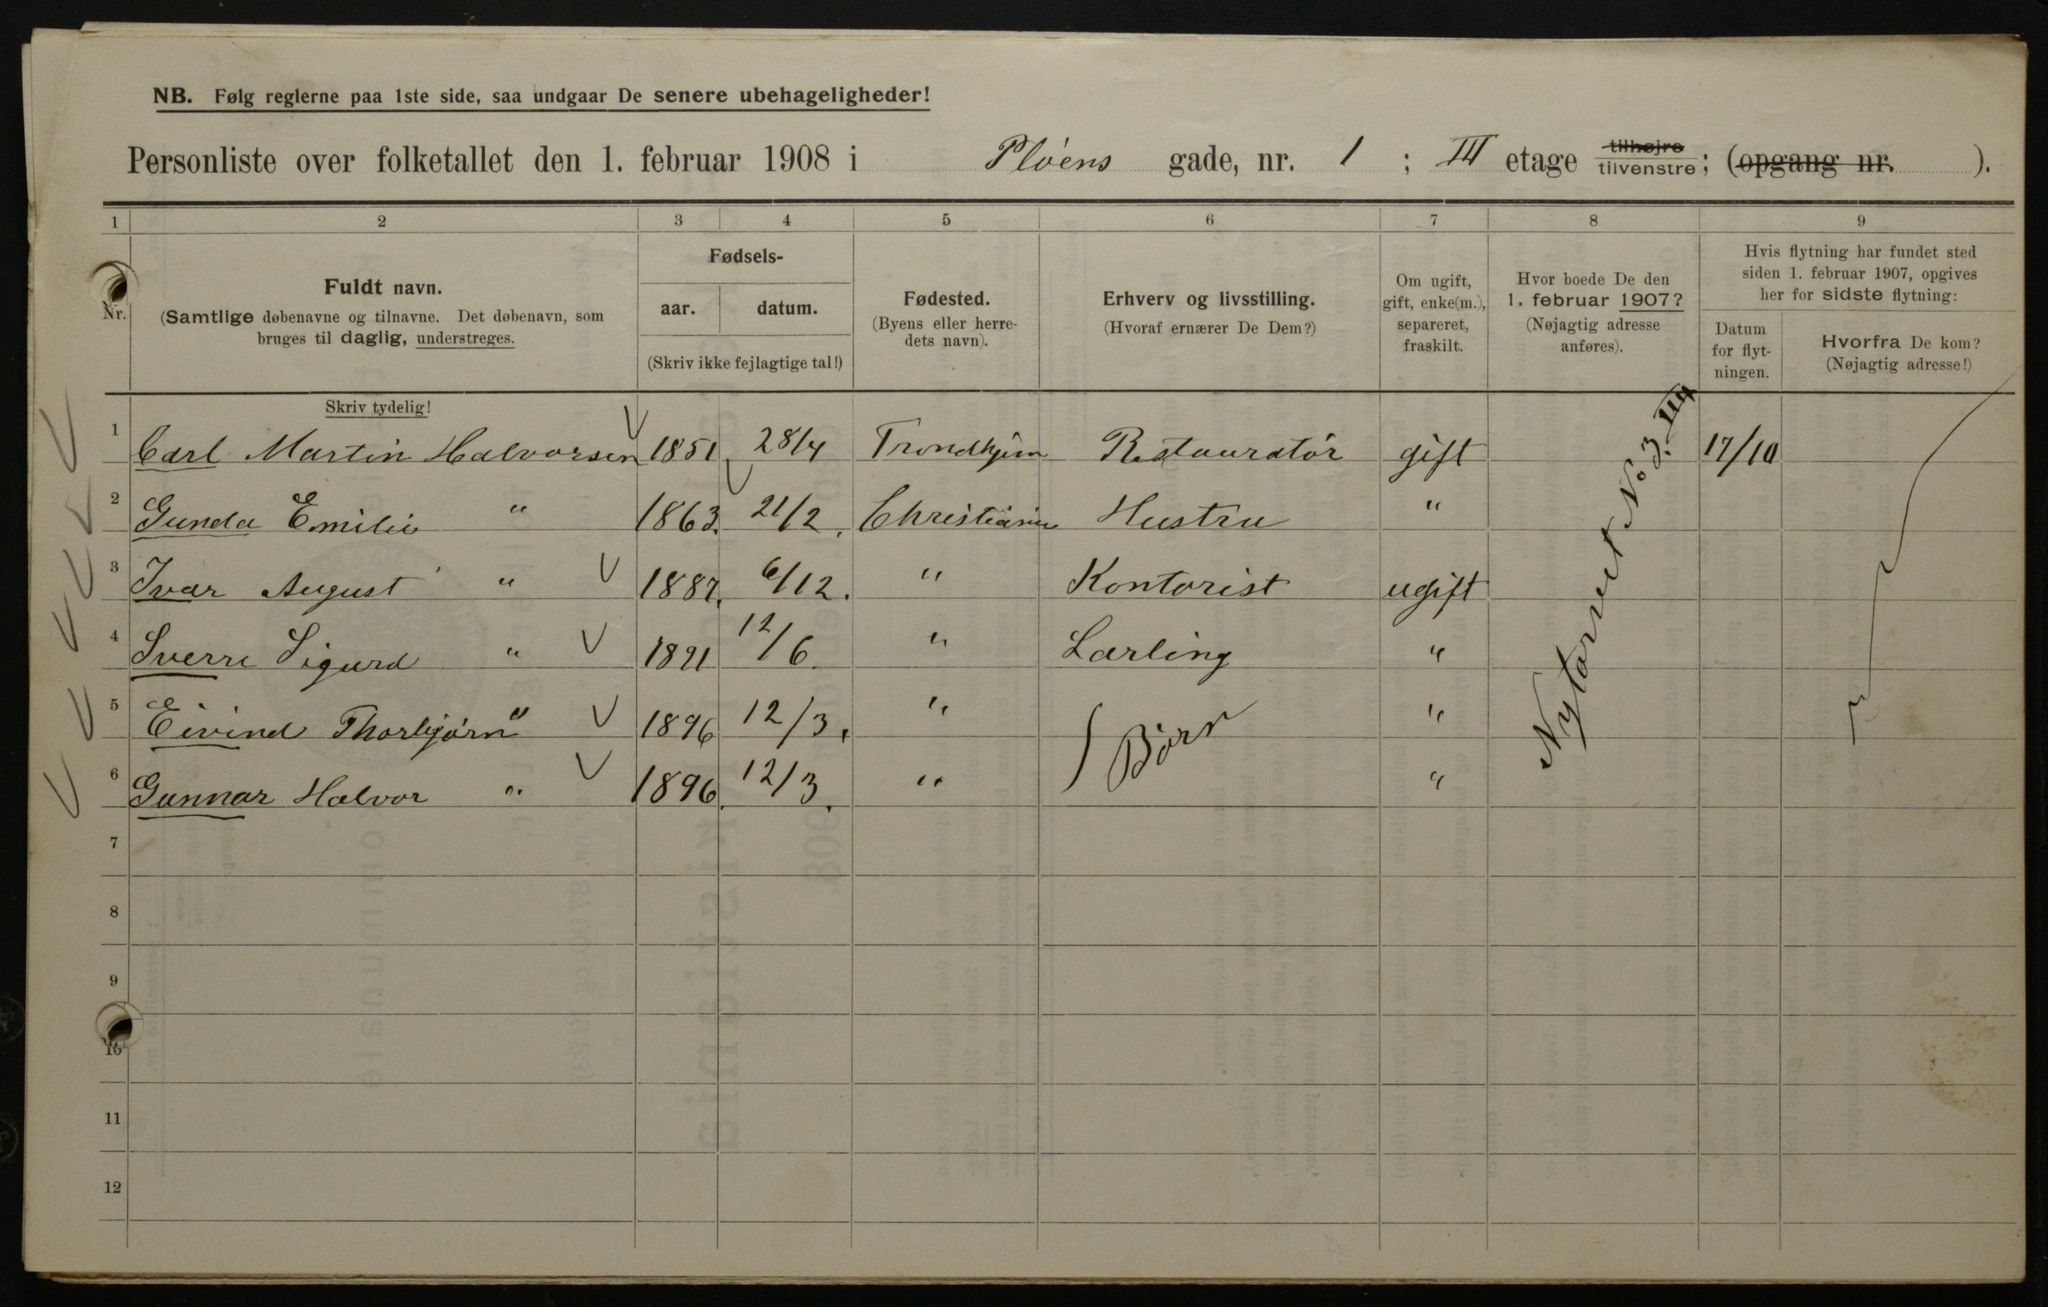 NB. Følg reglerne paa 1ste side, saa undgaar De senere ubehageligheder!
Personliste over folketallet den 1. februar 1908 i Pløens gade, nr. 1 ; III etage tilhøjre tilvenstre ; (opgang nr. ).
1 2 3 4 5 6 7 8 9
Nr.
Fuldt navn.
(Samtlige døbenavne og tilnavne. Det døbenavn, som
bruges til daglig, understreges.
Skriv tydelig!
Fødsels-
aar. datum.
(Skriv ikke fejlagtige tal!)
Fødested.
(Byens eller herre-
dets navn).
Erhverv og livsstilling.
(Hvoraf ernærer De Dem?)
Om ugift,
gift, enke(m.),
separeret,
fraskilt.
Hvor boede De den
1. februar 1907?
(Nøjagtig adresse
anføres).
Hvis flytning har fundet sted
siden 1. februar 1907, opgives
her for sidste flytning:
Datum
for flyt-
ningen.
Hvorfra De kom?
(Nøjagtig adresse!)
1 Carl Martin Halvorsen 1851 28/4 Trondhjem Restauratør gift 17/10
2 Gunda Emilie " 1863. 21/2. Christiania Hustru "
3 Ivar August " 1887. 6/12. " Kontorist ugift
4 Sverre Sigurd " 1891 12/6. " Lærling "
5 Eivind Thorbjørn " 1896 12/3. " Børn "
6 Gunnar Halvor " 1896. 12/3. " "
Nytorvet No 3. III
7
8
9
10
11
12